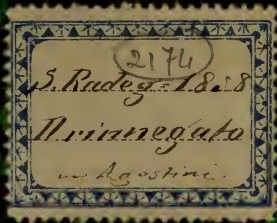 2174
S. Radeg = 1818
Il rinnegato
Agostini.